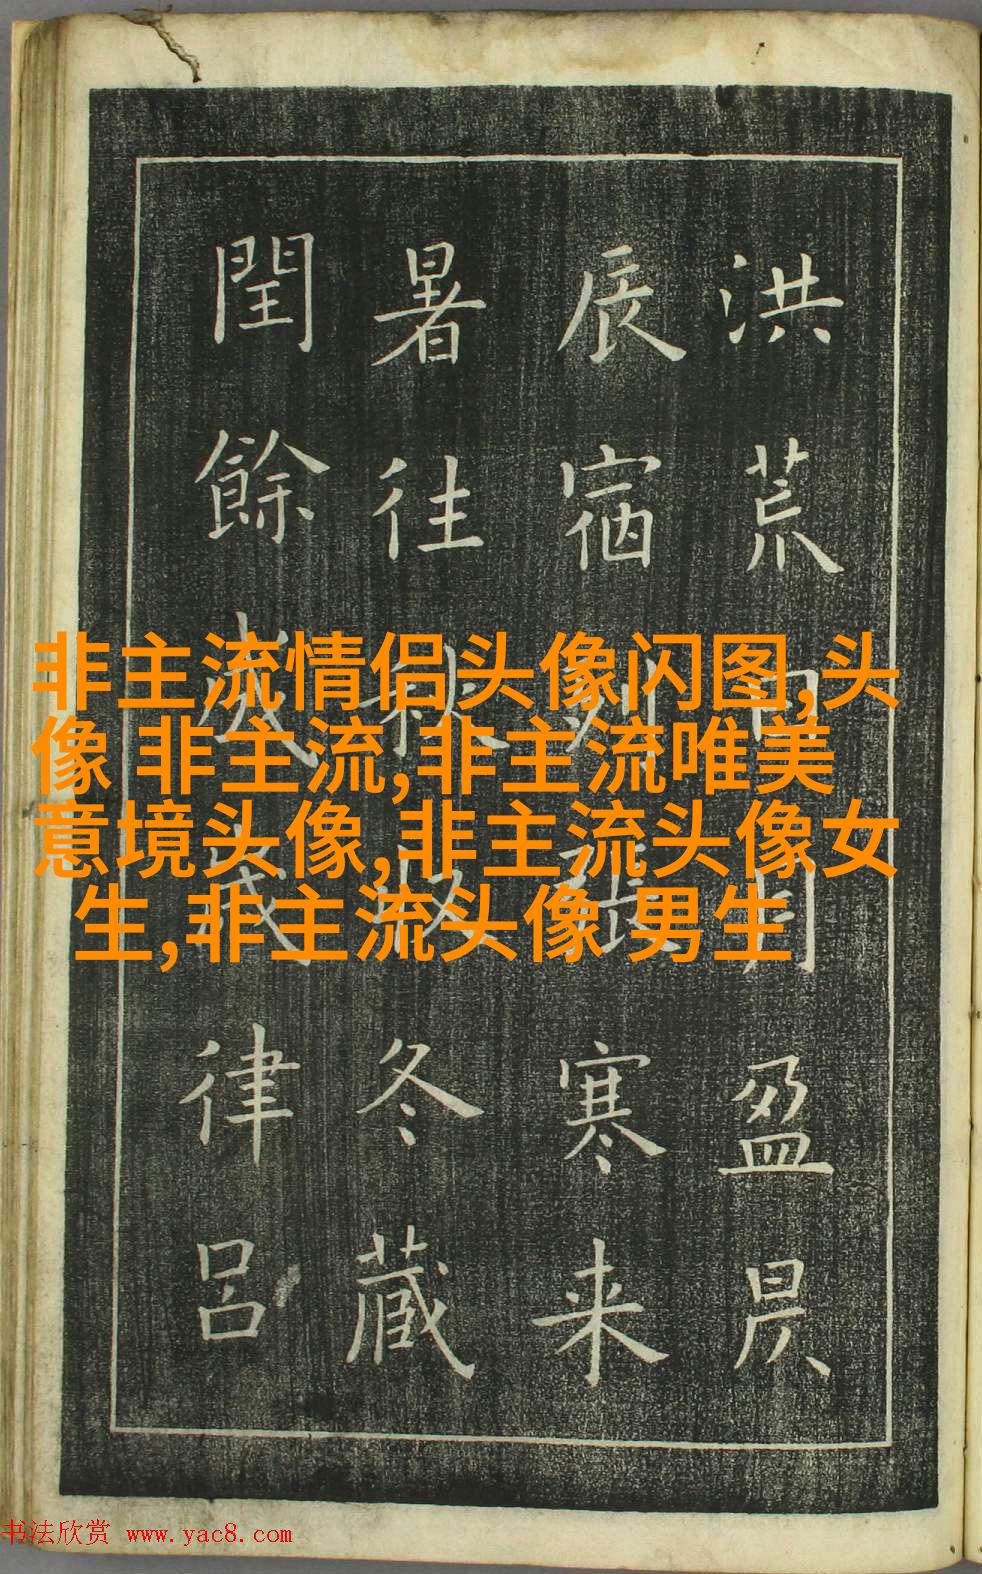 洪荒日月盈昃
辰宿列張寒来
暑往秋收冬藏
閏餘成歲律呂
非主流情侣头像闪图,头
像 非主流,非主流唯美
意境头像,非主流头像女
生,非主流头像 男生
书法欣赏 www.yac8.com